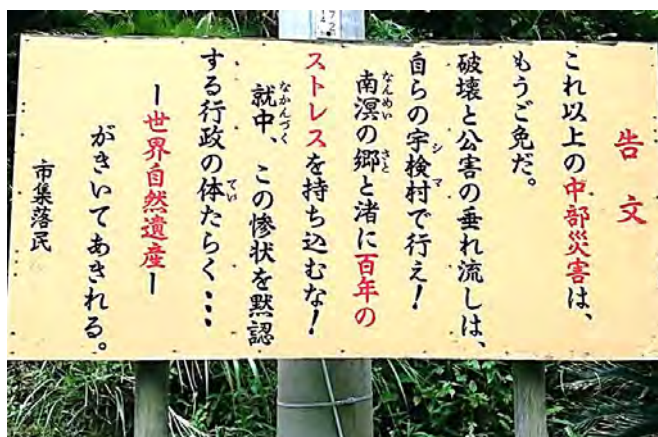 告文
これ以上の中部災害は、
もうご免だ。
破壊と公害の垂れ流しは、
自らの宇検村で行え!
南溟の郷と渚に百年の
ストレスを持ち込むな!
就中、この惨状を黙認
する行政の体たらく…
ー世界自然遺産ー
がきいてあきれる。
市集落民